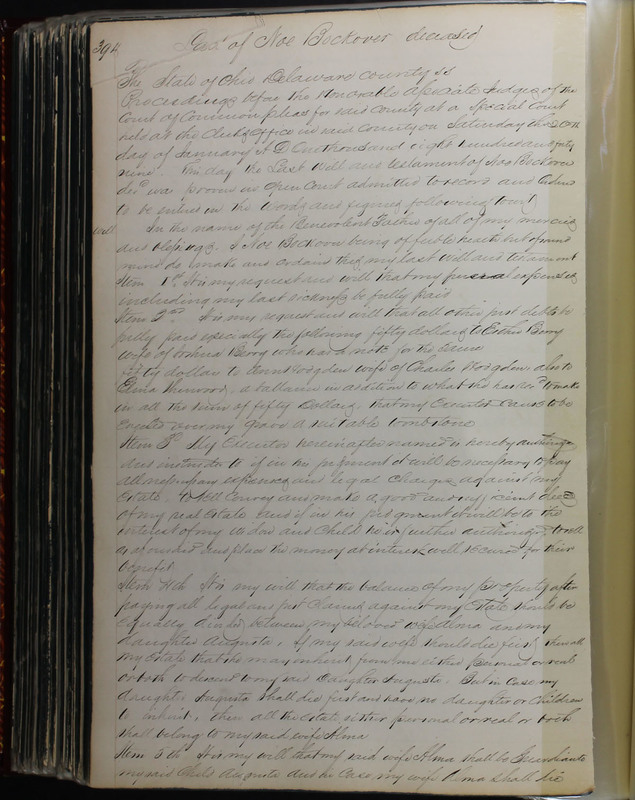 394
Will of Noe Bockover deceased
The State of Ohio Delaware County ss
Proceedings before the Honorable Asociate Judges of the
Court of Common pleas for said County at a Special Court
held at the Clerks Office in said County on Saturday the 20th
day of January A D One thousand eight hundred and forty
nine. This day the Last Will and testament of Noe Bockover
decd was proven in open Court admitted to record and ordered
to be entered in the words and figures following to wit
Will In the name of the Benevolent Father of all of my mercies
and blessings. I Noe Bockover being of feeble health but of sound
mind do make and ordain this my last Will and testament
Item 1st It is my request and will that my funeral expenses
including my last sickness be fully paid
Item 2nd It is my request and will that all other just debts be
fully paid especially the following fifty dollars to Berry
wife of Berry who has a note for the same
fifty dollars to Hodgden wife of Charles Hodgden, also to
a ballance in addition to what she has recd to make
in all the sum of fifty Dollars, that my Executor cause to be
erected over my grave a suitable tombstone
Item 3d My Executor hereinafter named is hereby authorized
and instructed if in his judgment it will be necessary to pay
all necessary expenses and legal charges against my
Estate, to sell convey and make a good and sufficient deed
of my real Estate and if in his judgment it will be to the
interest of my widow and child he is further authorized to sell
as aforesaid and place the money at interest well secured for their
benefit
Item 4th It is my will that the balance of my property after
paying all legal and just claims against my Estate should be
equally divided between my beloved wife Alma and my
daughter Augusta. If my said wife should die first then all
my Estate that she may inherit from me either personal or real
or both to descend to my said Daughter Augusta. But in case my
daughter Augusta shall die first and have no daughter or children
to inherit, then all the Estate either personal or real or both
shall belong to my said wife Alma
Item 5th It is my will that my said wife Alma shall be Guardian to
my said child Augusta and in case my wife Alma shall die